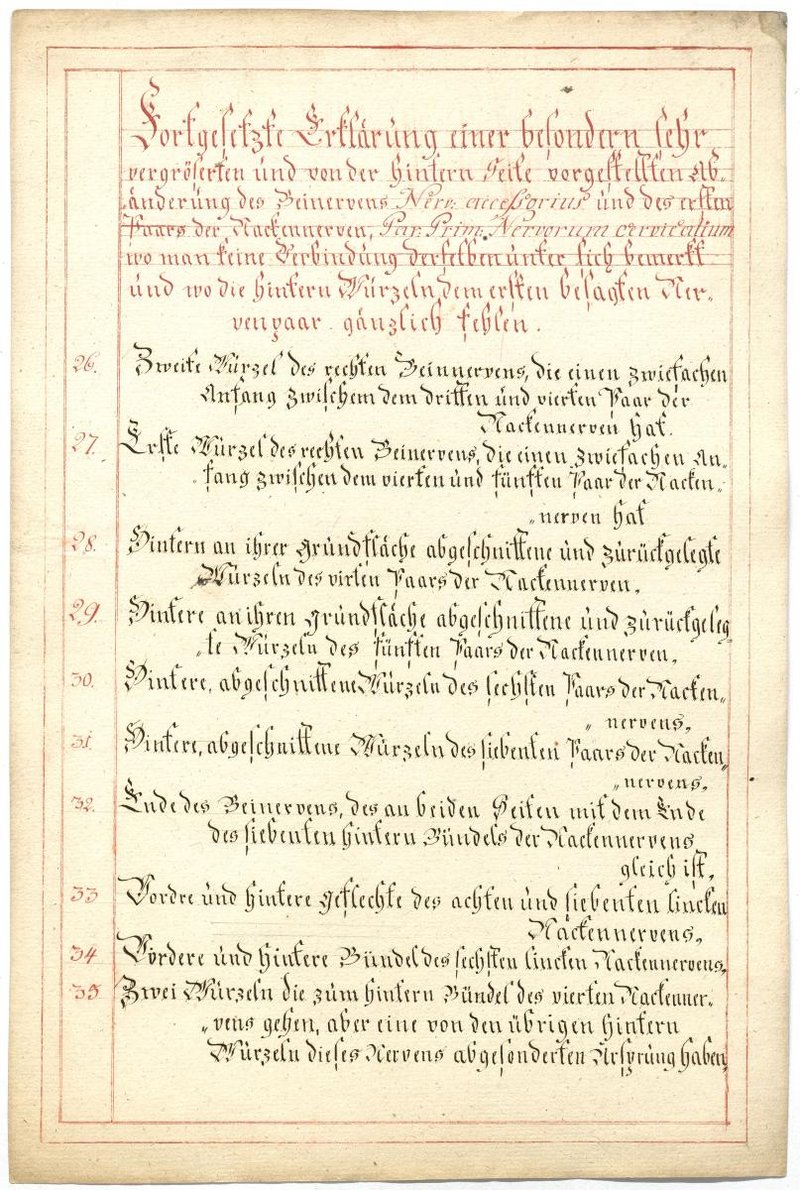 Fortgesetzte Erklärung einer besondern sehr
vergröserten und von der hintern Seite vorgestellten Ab„
„änderung des Beinervens Nerv: acceßorius und des ersten
Paars der Nackennerven, Par: Prim: Nervorum cervicalium
wo man keine Verbindung derselben unter sich bemerkt
und wo die hintern Würzeln dem ersten besagten Ner„
venpaar gänzlich fehlen.
26. Zweite Würzel des rechten Beinnervens, die einen zwiefachen
Anfang zwischem dem dritten und vierten Paar der
Nackennerven hat.
27. Erste Würzel des rechten Beinervens, die einen zwiefachen An„
„fang zwischen dem vierten und fünften Paar der Nacken„
„nerven hat
28. Hintern an ihrer Grundfläche abgeschnittene und zurückgelegte
Würzeln des virten Paars der Nackennerven.
29. Hintere an ihren Grundfläche abgeschnittene und zurückgeleg
„te Würzeln des fünften Paars der Nackennerven.
30. Hintere, abgeschnittene Würzeln des sechsten Paars der Nacken„
„nervens.
31. Hintere, abgeschnittene Würzeln des siebenten Paars der Nacken„
„nervens.
32. Ende des Beinervens, des an beiden Seiten mit dem Ende
des siebenten hintern Bündels der Nackennervens
gleich ist.
33 Vordre und hintere Geflechte des achten und siebenten lincken
Nackennervens.
34 Vördere und hintere Bündel des sechsten lincken Nackennervens.
35 Zwei Würzeln die zum hintern Bündel des vierten Nackenner„
„vens gehen, aber eine von den übrigen hintern
Würzeln dieses Nervens abgesonderten Ursprung haben.